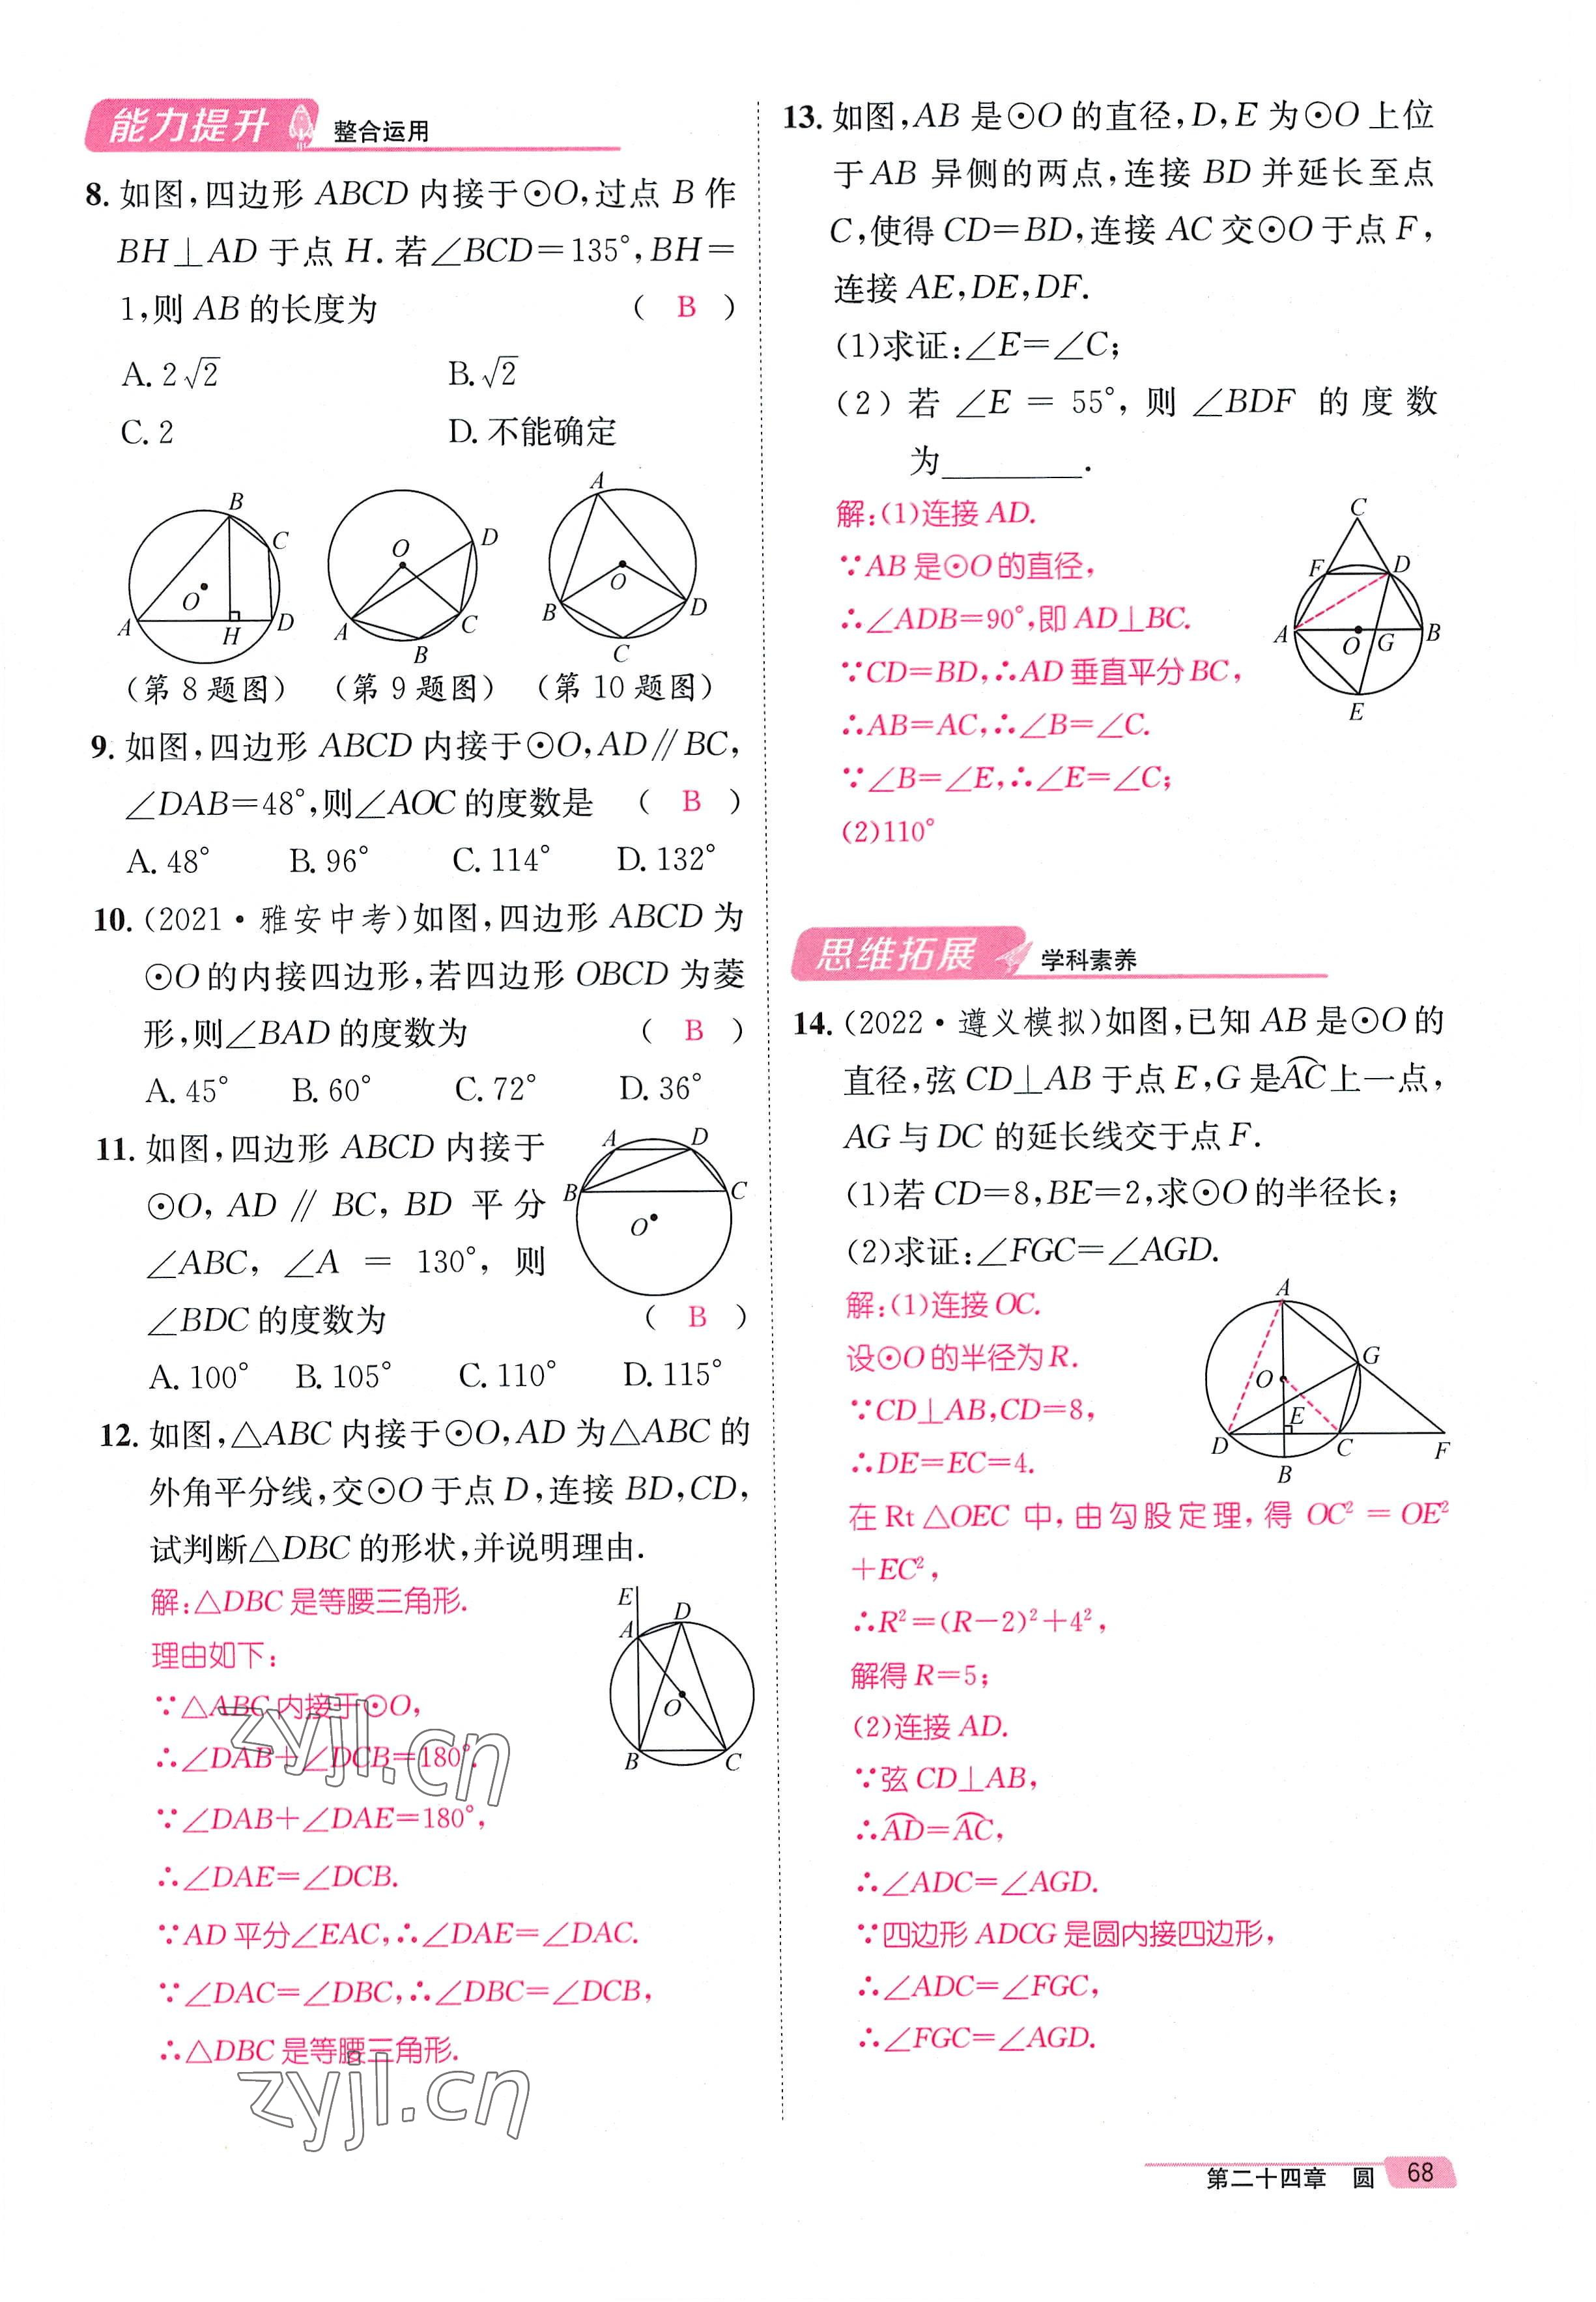 能力提升 整合运用
8. 如图,四边形 ABCD 内接于⊙O,过点 B 作
BH⊥AD 于点 H. 若∠BCD=135°,BH=
1,则 AB 的长度为 ( B )
A. 2√2 B. √2
C. 2 D. 不能确定
B C O A H D
O D A B C
A O B D C
(第 8 题图) (第 9 题图) (第 10 题图)
9. 如图,四边形 ABCD 内接于⊙O,AD∥BC,
∠DAB=48°,则∠AOC 的度数是 ( B )
A. 48° B. 96° C. 114° D. 132°
10. (2021·雅安中考)如图,四边形 ABCD 为
⊙O 的内接四边形,若四边形 OBCD 为菱
形,则∠BAD 的度数为 ( B )
A. 45° B. 60° C. 72° D. 36°
11. 如图,四边形 ABCD 内接于
⊙O, AD ∥ BC, BD 平分
∠ABC, ∠A = 130°, 则
∠BDC 的度数为 ( B )
A D B C O
A. 100° B. 105° C. 110° D. 115°
12. 如图,△ABC 内接于⊙O,AD 为△ABC 的
外角平分线,交⊙O 于点 D,连接 BD,CD,
试判断△DBC 的形状,并说明理由.
解:△DBC 是等腰三角形.
理由如下:
∵△ABC 内接于⊙O,
∴∠DAB+∠DCB=180°.
∵∠DAB+∠DAE=180°,
∴∠DAE=∠DCB.
∵AD 平分∠EAC,∴∠DAE=∠DAC.
∵∠DAC=∠DBC,∴∠DBC=∠DCB,
∴△DBC 是等腰三角形.
E D A O B C
zyjl.cn
zyjl.cn
13. 如图,AB 是⊙O 的直径,D,E 为⊙O 上位
于 AB 异侧的两点,连接 BD 并延长至点
C,使得 CD=BD,连接 AC 交⊙O 于点 F,
连接 AE,DE,DF.
(1)求证:∠E=∠C;
(2)若 ∠E = 55°, 则 ∠BDF 的度数
为________.
解:(1)连接 AD.
∵AB 是⊙O 的直径,
∴∠ADB=90°,即 AD⊥BC.
∵CD=BD,∴AD 垂直平分 BC,
∴AB=AC,∴∠B=∠C.
∵∠B=∠E,∴∠E=∠C;
(2)110°
C F D A O G B E
思维拓展 学科素养
14. (2022·遵义模拟)如图,已知 AB 是⊙O 的
直径,弦 CD⊥AB 于点 E,G 是A͡C上一点,
AG 与 DC 的延长线交于点 F.
(1)若 CD=8,BE=2,求⊙O 的半径长;
(2)求证:∠FGC=∠AGD.
解:(1)连接 OC.
设⊙O 的半径为 R.
∵CD⊥AB,CD=8,
∴DE=EC=4.
在 Rt△OEC 中,由勾股定理,得 OC²=OE²
+EC²,
∴R²=(R−2)²+4²,
解得 R=5;
(2)连接 AD.
∵弦 CD⊥AB,
∴A͡D=A͡C,
∴∠ADC=∠AGD.
∵四边形 ADCG 是圆内接四边形,
∴∠ADC=∠FGC,
∴∠FGC=∠AGD.
A G O E D C F B
第二十四章 圆 68